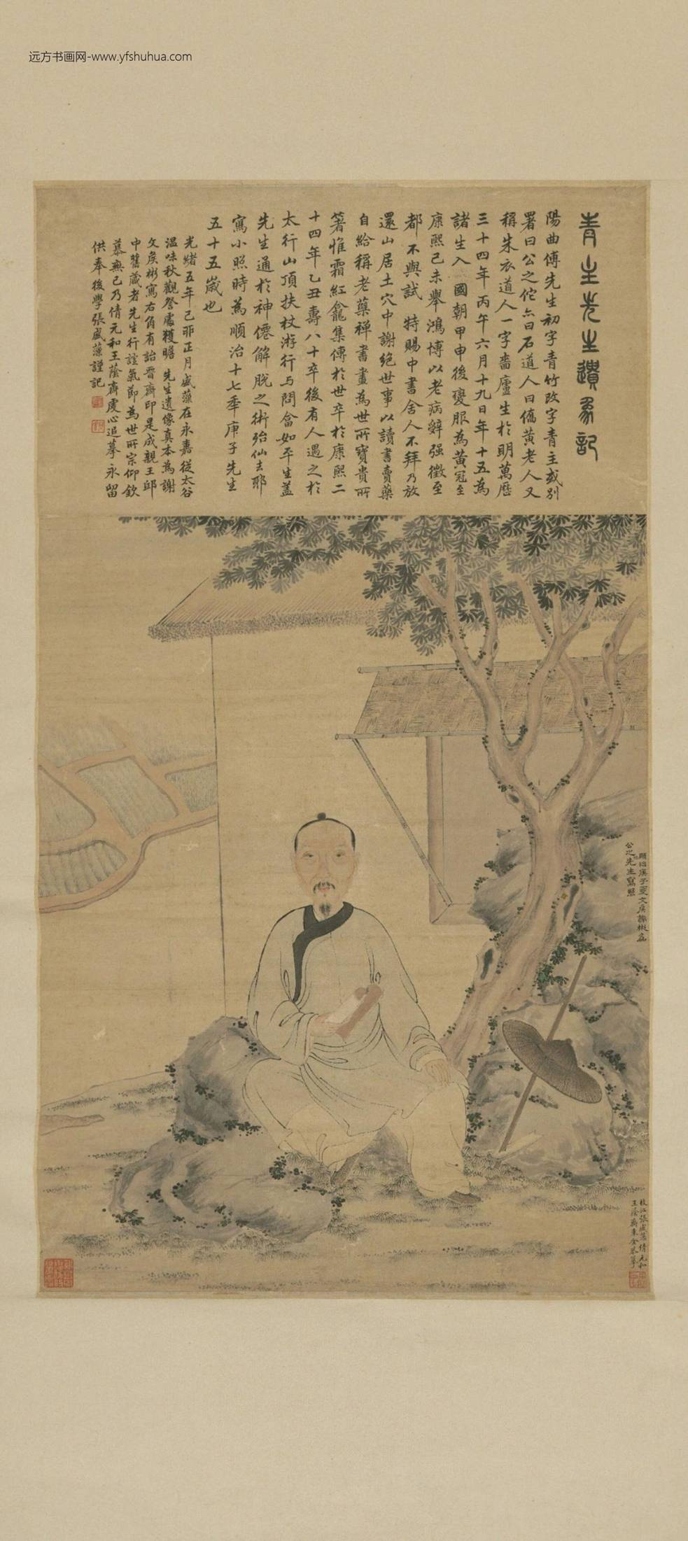 远方书画网-www.yfshuhua.com
青主先生遺象記
陽曲傅先生初字青竹改字青主或別
署曰公之佗亦曰石道人曰僑黃老人又
稱朱衣道人一字嗇廬生於明萬曆
三十四年丙午六月十九日年十五為
諸生入國朝甲申後褒服為黃冠至
康熙己未舉鴻博以老病辭强徵至
都不與試特賜中書舍人不拜乃放
還山居土穴中謝絕世事以讀書賣藥
自給稱老藥禪書畫為世所寶貴所
著惟霜紅龕集傳於世卒於康熙二
十四年乙丑壽八十卒後有人遇之於
太行山頂扶杖游行与問畣如平生蓋
先生通於神僊解脫之術殆仙去耶
寫小照時為順治十七年庚子先生
五十五歲也
光緒五年己卯正月盛藻在永嘉從太谷
溫味秋觀詧處獲瞻先生遺像真本為謝
文侯彬寫右角有詒晉齋印是成親王邸
中舊藏者先生行誼氣節為世所宗仰欽
慕無已乃倩元和王蔭齋虔心追摹永留
供奉後學張盛藻謹記
公之先生寫照
枝江張盛藻倩元和